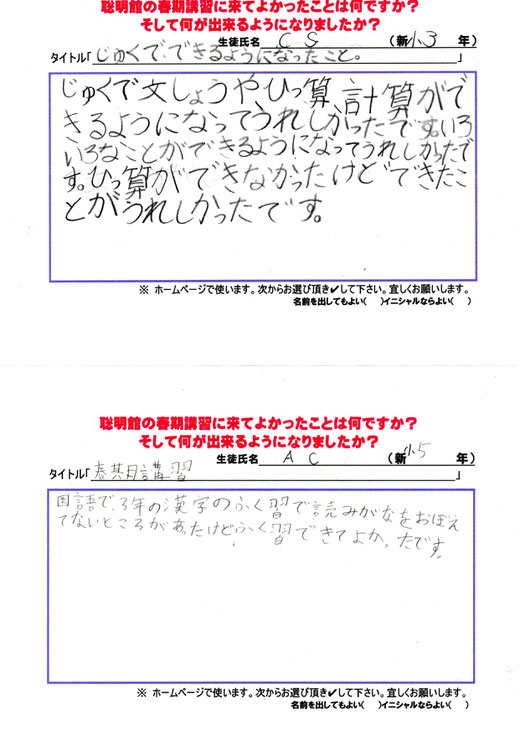 聡明館の春期講習に来てよかったことは何ですか？
そして何が出来るようになりましたか？
生徒氏名 C S （新小3 年）
タイトル「じゅくで、できるようになったこと。」
じゅくで文しょうやひっ算、計算がで
きるようになってうれしかったです。いろ
いろなことができるようになってうれしかったで
す。ひっ算ができなかったけどできたこ
とがうれしかったです。
※ ホームページで使います。次からお選び頂き✔して下さい。宜しくお願いします。
名前を出してもよい（ ）イニシャルならよい（ ）
聡明館の春期講習に来てよかったことは何ですか？
そして何が出来るようになりましたか？
生徒氏名 A C （新小5 年）
タイトル「春期講習」
国語で、3年の漢字のふく習で読みがなをおぼえ
てないところがあったけどふく習できてよかったです。
※ ホームページで使います。次からお選び頂き✔して下さい。宜しくお願いします。
名前を出してもよい（ ）イニシャルならよい（ ）